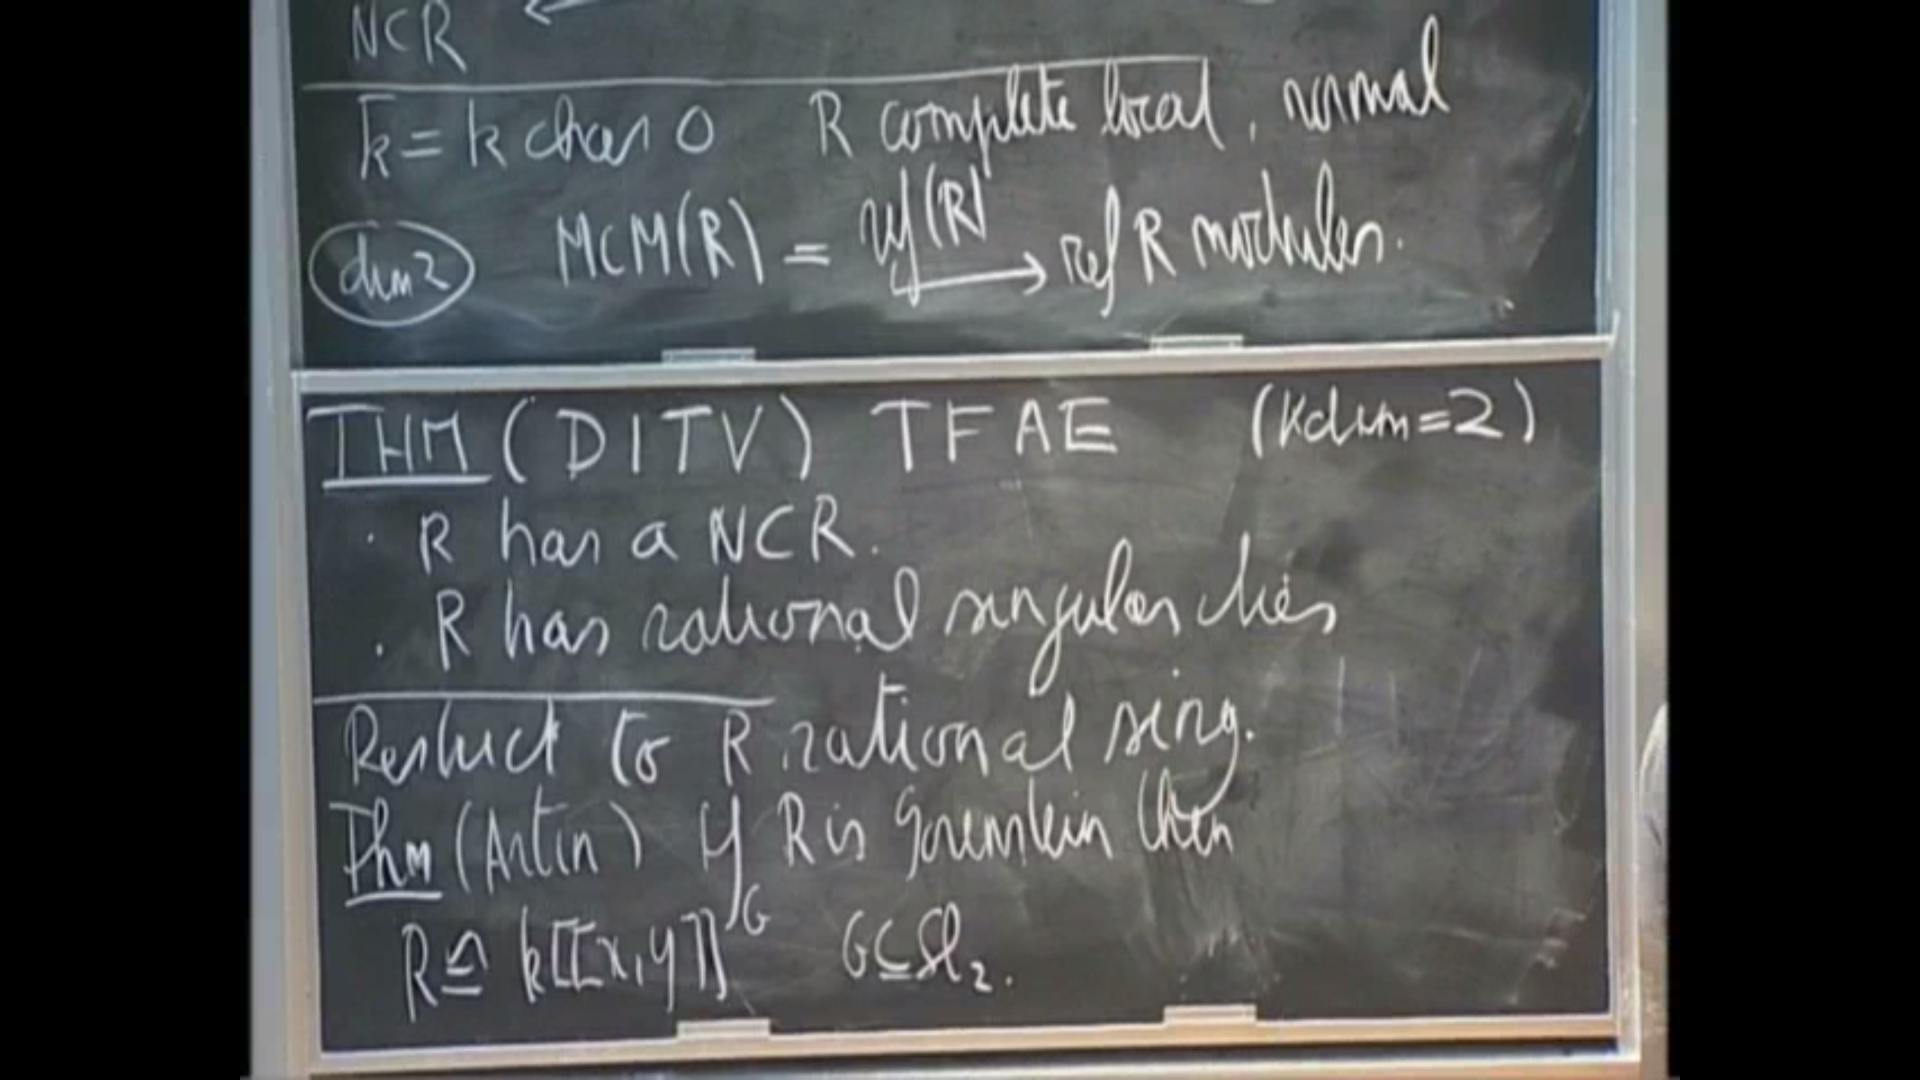 NCR ←
k̄ = k char 0 R complete local, normal
dim 2 MCM(R) = ref(R) → ref R modules.
THM (DITV) TFAE (Kdim=2)
· R has a NCR.
· R has rational singularities
Restrict to R rational sing.
Thm (Artin) If R is Gorenstein then
R ≅ k[[x,y]]^G G ⊆ Sl₂.